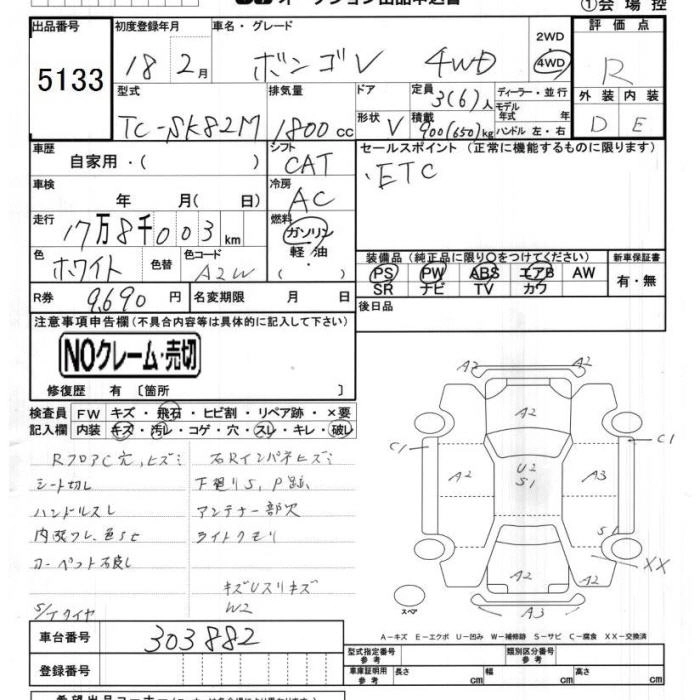 オークション出品申込書
①会場控
出品番号 初度登録年月 車名・グレード 2WD 評価点
5133 18 2月 ボンゴV 4WD 4WD R
型式 排気量 ドア 定員 ディーラー・並行 外装 内装
3(6)人 モデル年式 年
TC-SK82M 1800cc 形状 V 積載 900(650)kg ハンドル 左・右 D E
車歴 シフト セールスポイント(正常に機能するものに限ります)
自家用・( ) CAT ・ETC
車検 冷房
年 月( 日) AC
走行 燃料
17万8千003km ガソリン
色 色替 色コード 軽油 装備品(純正品に限り○をつけてください) 新車保証書
ホワイト A2W ・( ) PS PW ABS エアB AW 有・無
SR ナビ TV カワ
R券 9,690円 名変期限 月 日 後日品
注意事項申告欄(不具合内容等は具体的に記入して下さい)
NOクレーム・売切
修復歴 有 〔箇所 〕
検査員 FW キズ・飛石・ヒビ割・リペア跡・×要
記入欄 内装 キズ・汚レ・コゲ・穴・スレ・キレ・破レ
RフロアC穴、ヒズミ 右Rインパネヒズミ
シート切レ 下廻りS、P跡
ハンドルスレ アンテナ一部欠
ライトクモリ
カーペット不良し
キズUスリキズ
S/Tタイヤ W2
A2 A2
A2
C1 C1
A2 U2 A3
S1
S1
XX
A2 A2
スペア A3
A-キズ E-エクボ U-凹み W-補修跡 S-サビ C-腐食 XX-交換済
車台番号 303882 型式指定番号 参考 類別区分番号 参考
登録番号 車庫証明用 参考 長さ cm 幅 cm 高さ cm